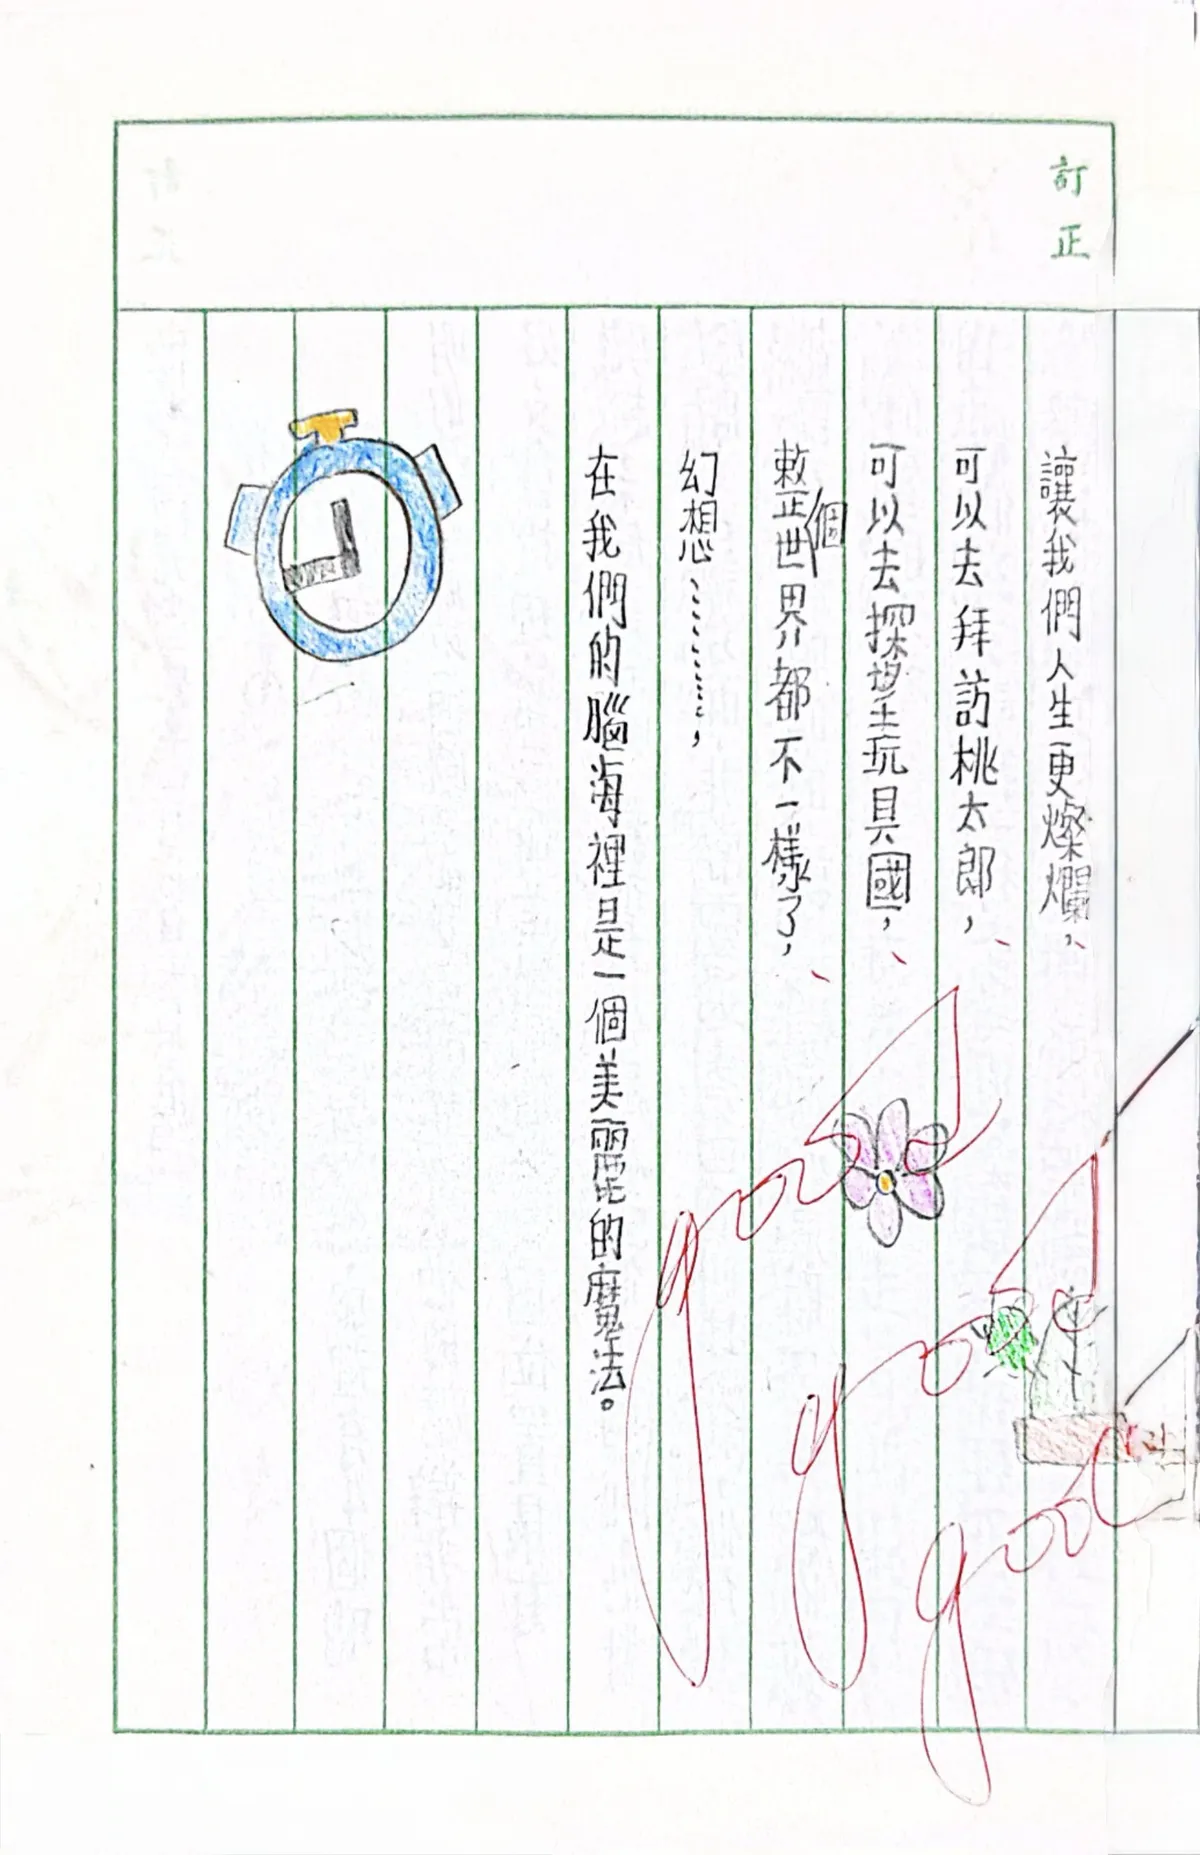 訂正
讓我們人生更燦爛，
可以去拜訪桃太郎，
可以去探望玩具國，
整個世界都不一樣了，
幻想…………，
在我們的腦海裡是一個美麗的魔法。
good
good
good